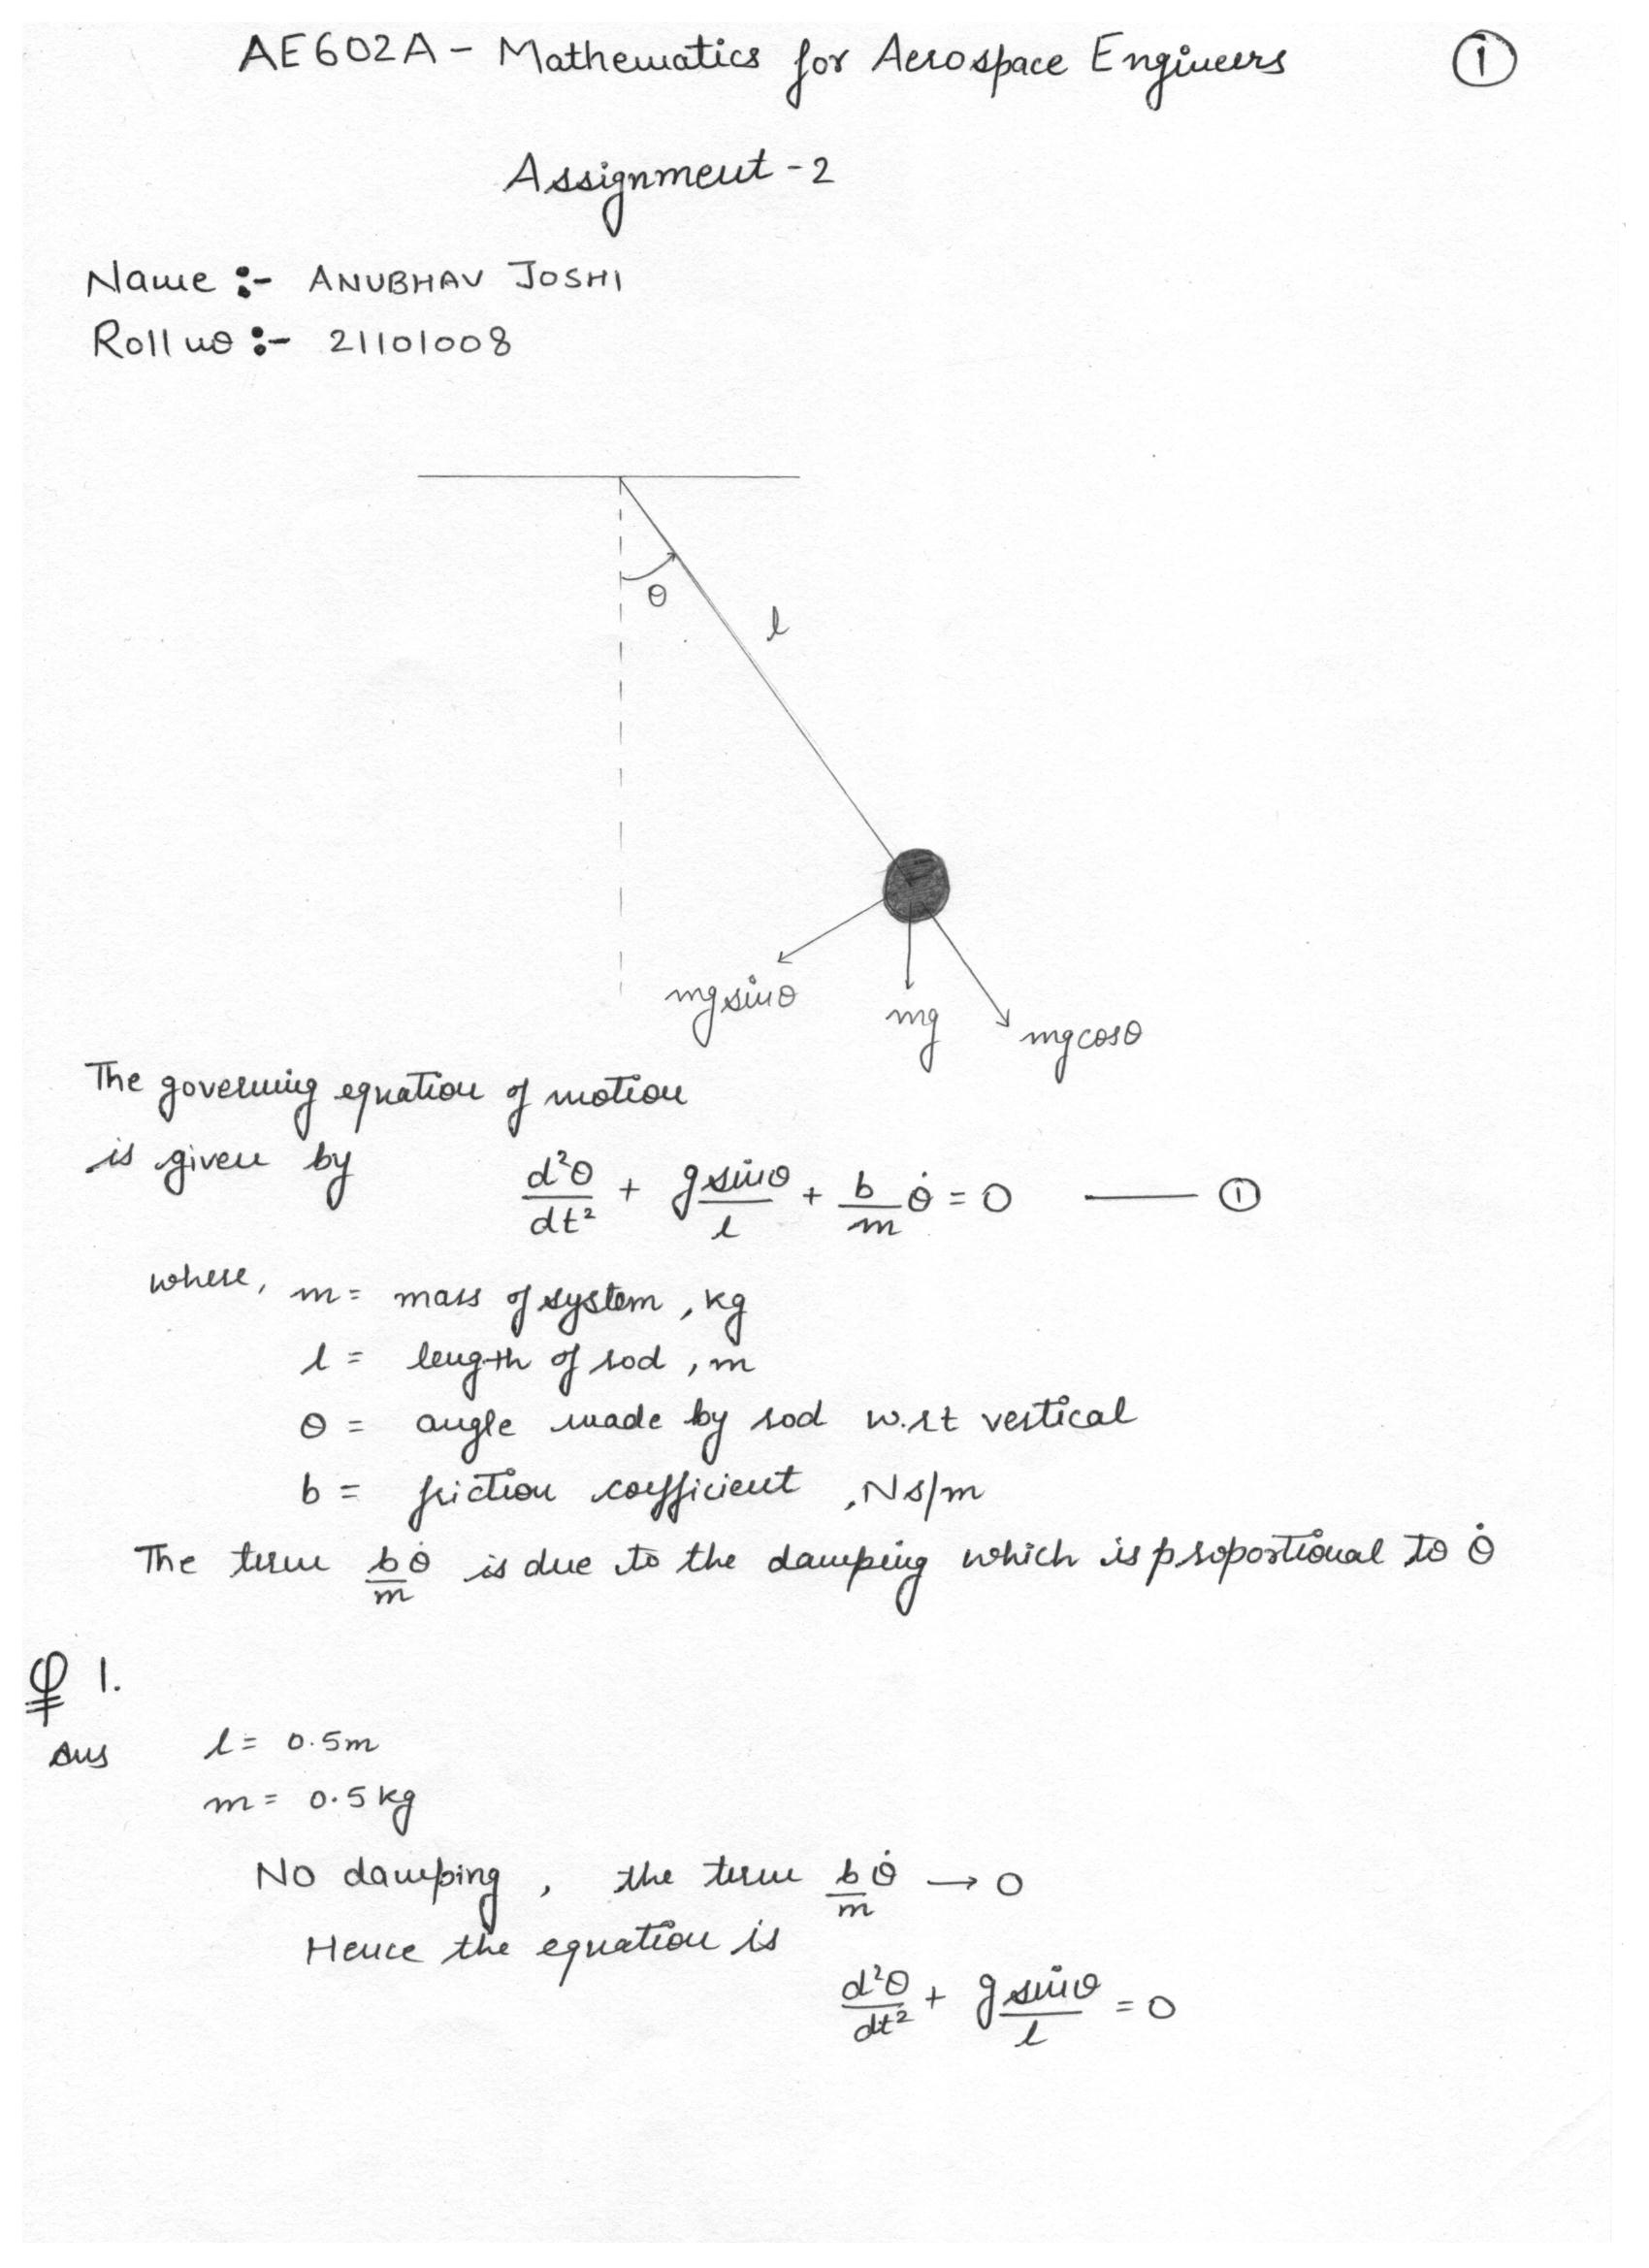 AE602A - Mathematics for Aerospace Engineers ①
Assignment - 2
Name :- ANUBHAV JOSHI
Roll no :- 21101008
θ
l
mg sinθ
mg
mg cosθ
The governing equation of motion
is given by d²θ/dt² + g sinθ/l + b/m θ̇ = 0 —— ①
where, m = mass of system, kg
l = length of rod, m
θ = angle made by rod w.r.t vertical
b = friction coefficient, Ns/m
The term b/m θ̇ is due to the damping which is proportional to θ̇
Q 1.
Ans l = 0.5m
m = 0.5 kg
No damping, the term b/m θ̇ → 0
Hence the equation is
d²θ/dt² + g sinθ/l = 0